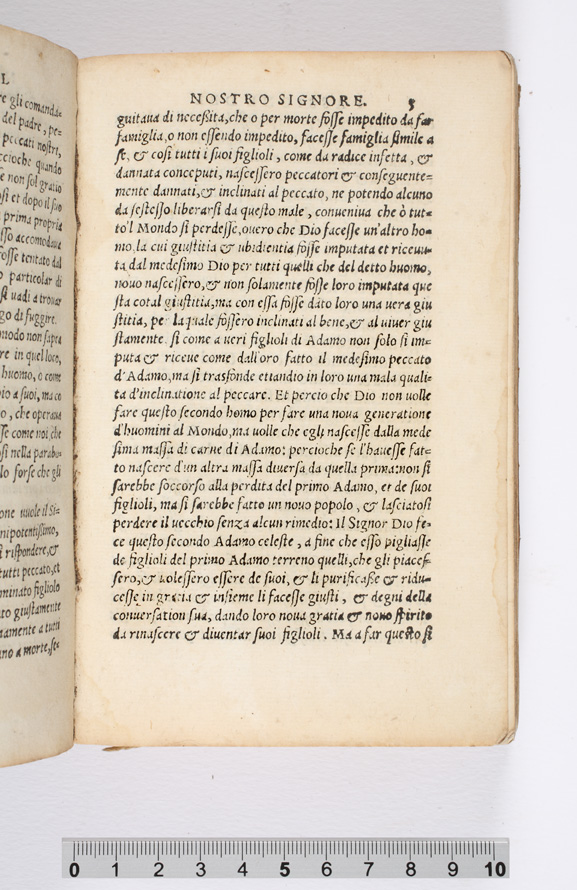 L
re gli comanda-
del padre, pe-
peccati nostri,
cioche quando
se non sol gratio
si et dopo il suo
prima propria
sso accomodaua
fosse tentato dal
particolar di
si uadi a trouar
go di fuggire.
modo non sapea
re in quel loco,
huomo, o come
io a suoi, ma co
o, che operaua
sse come noi, che
si nella parabo-
lo forse che gli
one uuole il Si-
nipotentissimo,
i rispondere, &
tutti peccato, et
minato figliolo
to giustamente
amente a tutti
no a morte, se-
NOSTRO SIGNORE. 5
guitaua di neceßita, che o per morte fosse impedito da far
famiglia, o non essendo impedito, facesse famiglia simile a
se, & cosi tutti i suoi figlioli, come da radice infetta, &
dannata conceputi, nascessero peccatori & conseguente-
mente dannati, & inclinati al peccato, ne potendo alcuno
da sestesso liberarsi da questo male, conueniua che ò tut-
to'l Mondo si perdesse, ouero che Dio facesse un'altro ho-
mo, la cui giustitia & ubidientia fosse imputata et riceuu-
ta dal medesimo Dio per tutti quelli che del detto huomo,
nouo nascessero, & non solamente fosse loro imputata que
sta cotal giustitia, ma con essa fosse dato loro una uera giu
stitia, per la quale fossero inclinati al bene, & al uiuer giu
stamente. si come a ueri figlioli di Adamo non solo si im-
puta & riceue come dal loro fatto il medesimo peccato
d'Adamo, ma si trasfonde etiandio in loro una mala quali-
ta d'inclinatione al peccare. Et percio che Dio non uolle
fare questo secondo homo per fare una noua generatione
d'huomini al Mondo, ma uolle che egli nascesse dalla mede
sima massa di carne di Adamo: percioche se l'hauesse fat-
to nascere d'un altra massa diuersa da quella prima: non si
sarebbe soccorso alla perdita del primo Adamo, et de suoi
figlioli, ma si sarebbe fatto un nouo popolo, & lasciatosi
perdere il uecchio senza alcun rimedio: Il Signor Dio fe-
ce questo secondo Adamo celeste, a fine che esso pigliasse
de figlioli del primo Adamo terreno quelli, che gli piaces-
sero, & uolessero essere de suoi, & li purificasse & ridu-
cesse in gratia & insieme li facesse giusti, & degni della
conuersation sua, dando loro noua gratia & nouo spirito
da rinascere & diuentar suoi figlioli. Ma a far questo si
0 1 2 3 4 5 6 7 8 9 10